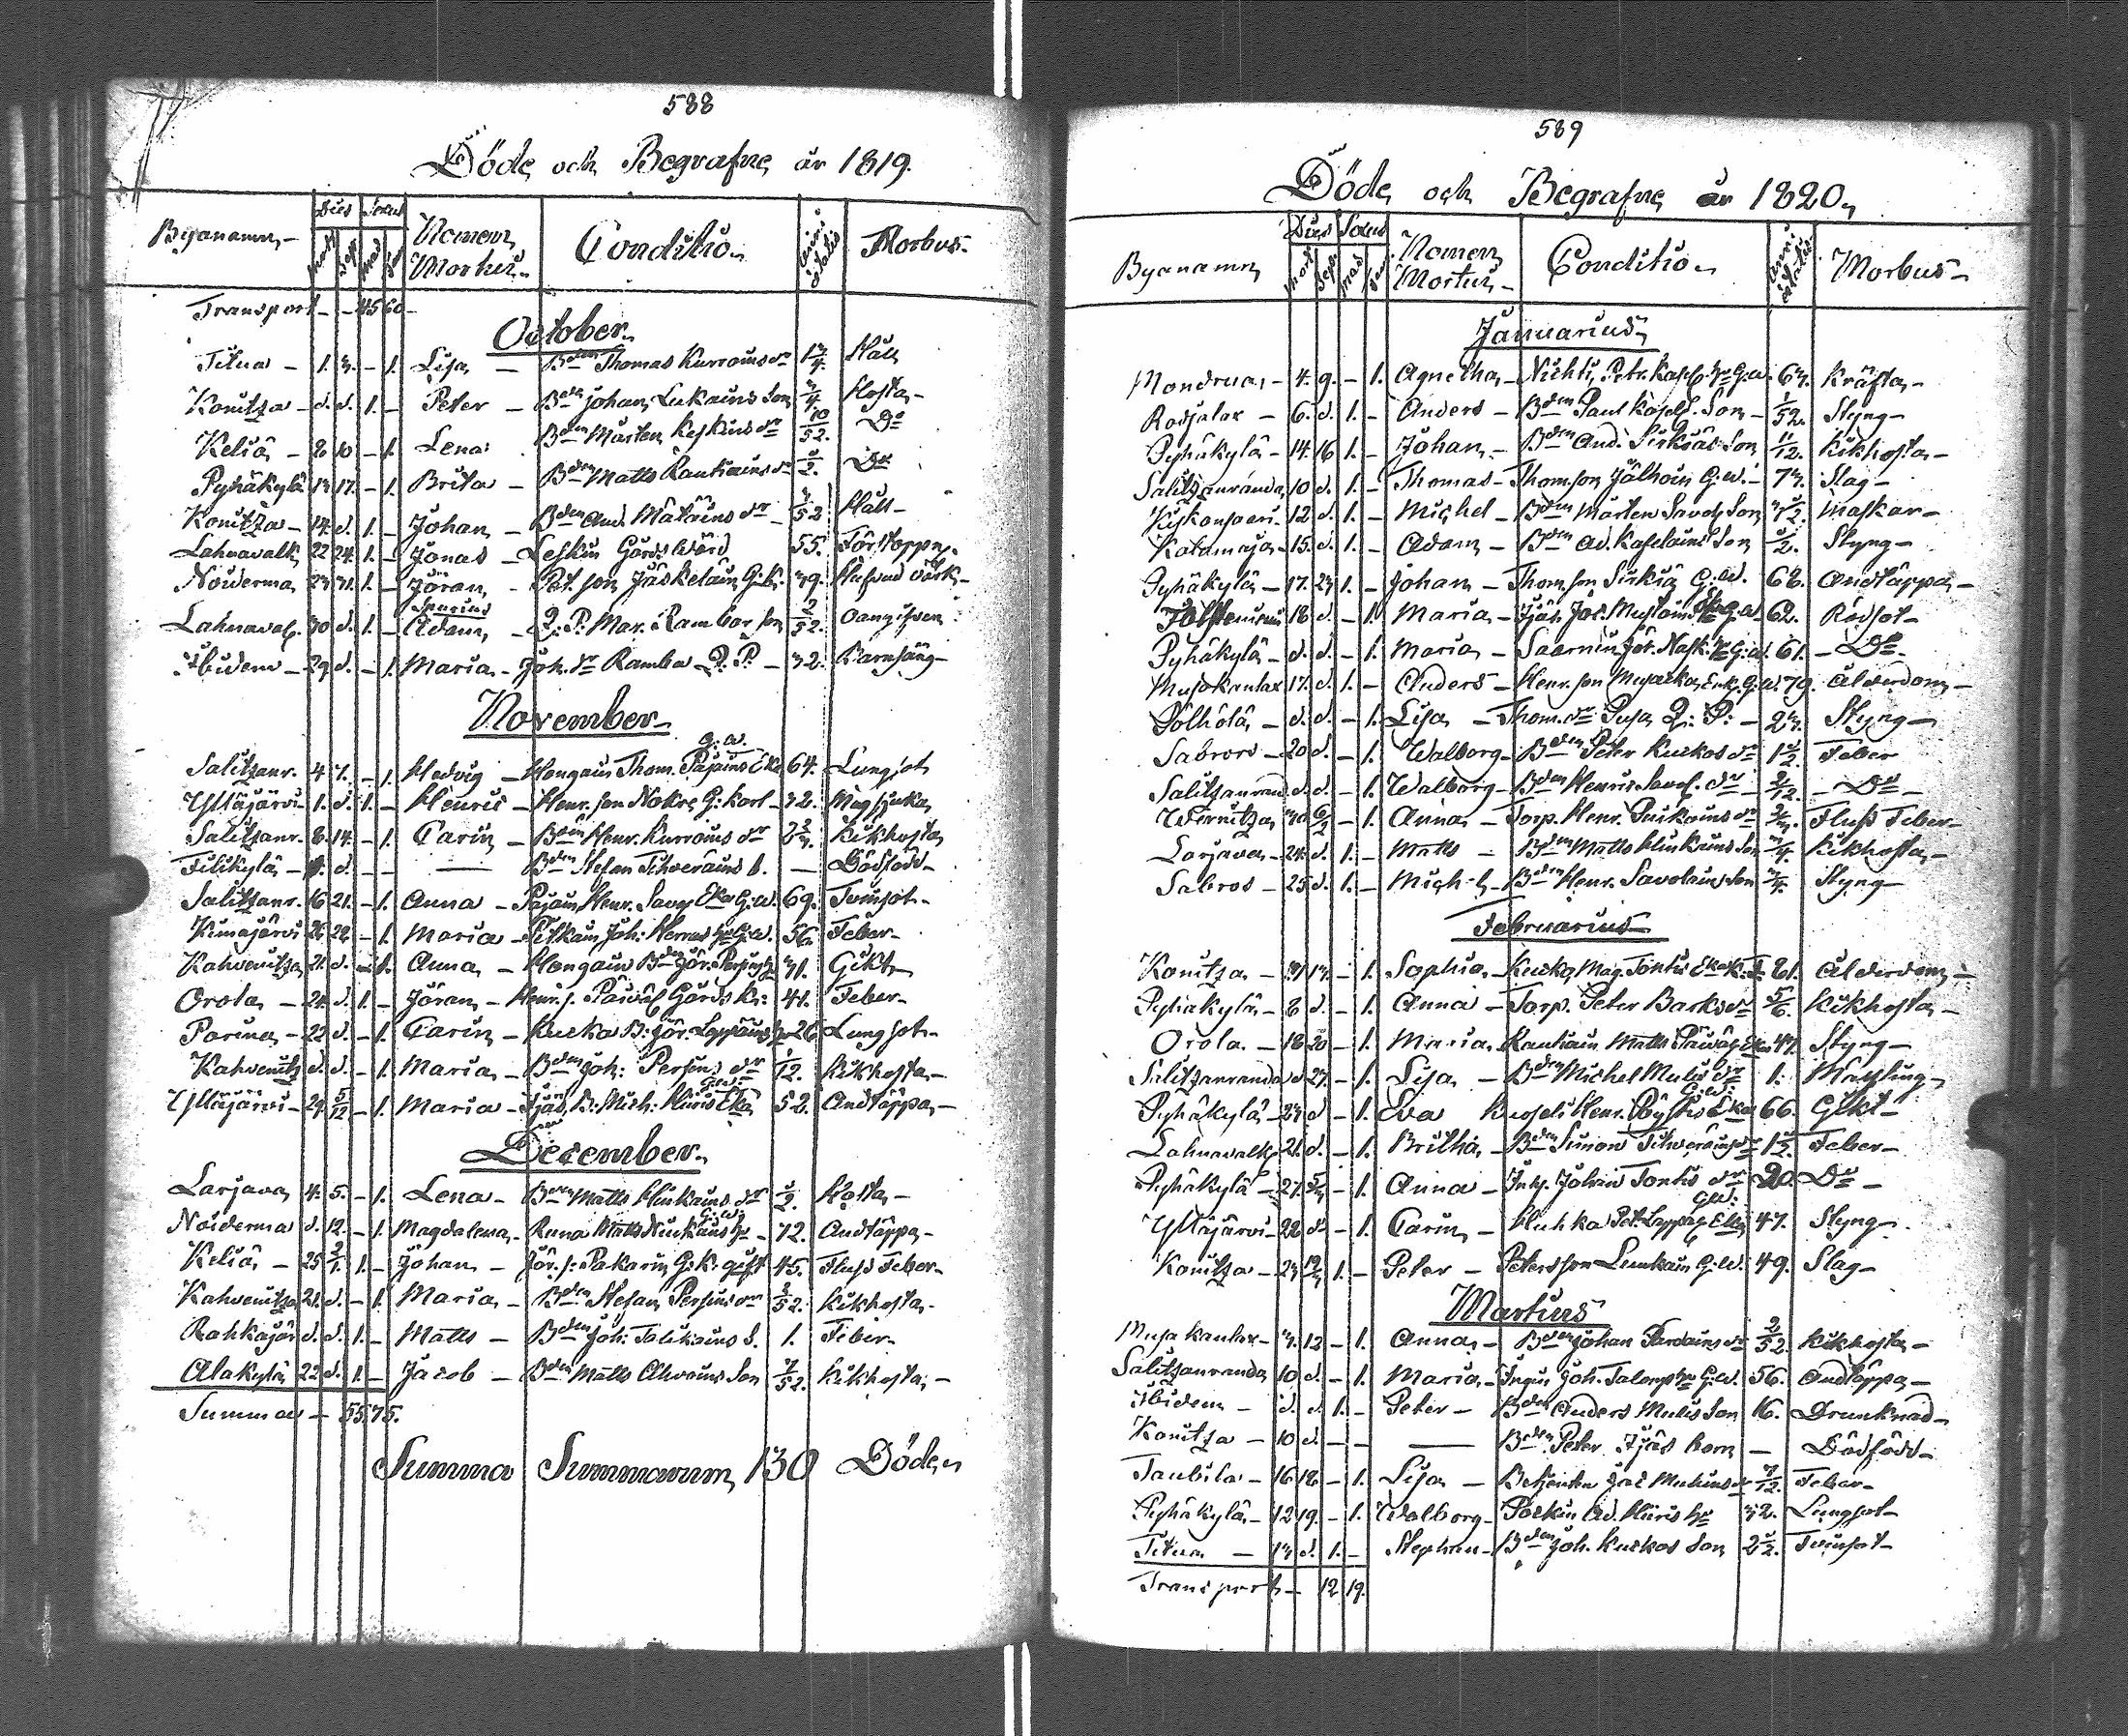 588
Döde och Begrafne år 1819.
Byanamn Dies Sexus Nomen Mortui Conditio Anni ætatis Morbus
mort sep mas fem
Transport 45 60
October
Titua 1. 3. - 1. Lisa Bden Thomas Kurroins dr 1 3/4. Håll
Konitza d. d. 1. - Peter Bden Johan Lukains Son 3/4 Hosta
Keliä 8 10 - 1. Lena Bden Mårten Keskins dr 10/52. Do
Pyhäkylä 13 17. - 1. Brita Bden Matts Rautiains dr 1/2. Do
Konitza 14. d. 1. - Johan Bden And. Mätäins 3/52 Håll
Lahnavalk. 22 24. 1. - Jonas Leskin Gårds Wärd 55. Förstoppn.
Noiderma 23 31. 1. - Jöran Pet. son Jäskeläin G.K. 39. Hufvud värk
Lahnaval. 30 d. 1. - Spurius Adam Q. P. Mar. Ramba 2/52. Oangifven
Ibidem 29 d. - 1. Maria Joh. dr Ramba Q. P. 32. Barnsäng
November
Salitzanr. 4 7. - 1. Hedvig Hongain Thom. Pajains Eka G. W. 64. Lungsot
Yläjärvi 1. d. 1. - Henric Henr. son Nokre G. Karl 32. Magsjuka
Salitzanr. 8 14. - 1. Carin Bden Henr. Kurroins dr 2 2/3. Kikhosta
Tilikylä d. - - Bden Stefan Tihveräins b. - Dödfödd
Salitzanr. 16 21. - 1. Anna Pajain Henr. Savol Eka G. W. 69. Tvinsot
Kimajärvi - 1. Maria Pitkäin Joh. G. W. 56. Feber
Kahvenitza 21. d. - 1. Anna Hongain Bden Jör. 31. Gikt
Orola 21. d. 1. - Jöran Henr. s. Gårds Kr: 41. Feber
Parina 22 d. - 1. Carin Kurka B. Jör. Leppäins hu 26 Lungsot
Kahvenitz d. d. - 1. Maria Bden Joh: Persins dr 1/12. Kikhosta
Yläjärvi 29. 5/12 - 1. Maria Ijäs B: Mich: Hiiris Eka 52. Andtäppa
December
Larjava 4. 5. - 1. Lena Bden Matts Hinkains dr 1/2. Hosta
Noiderma d. 12. - 1 Magdalena G. W. hu 72. Andtäppa
Keliä 25 2/1. 1. - Johan Jör. s. Pakarin G. K. gift 45. Fluss Feber
Kahvenitza 21. d. - 1. Maria Bden Stefan Persins dr 3/52. Kikhosta
Rahkajär d. d. 1. - Matts Bden Joh: Talikains S. 1. Feber
Alakylä 22 d. 1. - Jacob Bden Matts Ahvoins Son 7/52. Kikhosta
Summa 55 75.
Summa Summarum 130 Döde
589
Döde och Begrafne år 1820
Byanamn Dies Sexus Nomen Mortui Conditio Anni ætatis Morbus
mort sep mas fem
Januarius
Mondrua 4. 9. - 1. Agnetha Nichti, Petr. hu G. W. 63. Kräfta
Radjalax 6. d. 1. - Anders Bden Paul Son 1/52. Styng
Pyhäkylä 14. 16 1. - Johan Bden And. Sirkiäs Son 11/12. Kikhosta
Salitzanranda 10 d. 1. - Thomas Thomson Jälhoin G. W. 73. Slag
12 d. 1. - Michel Bden Mårten Savol. Son Maskar
Katamaja 15. d. 1. - Adam Bden Ad. Kapelains Son 1/2. Styng
Pyhäkylä 17. 23 1. - Johan Thom. son Sirkiä G. W. 68. Andtäppa
18 d. - 1. Maria Ijäs Jac. 62. Rödsot
Pyhäkylä d. d. - 1. Maria Saarnin Jör. hu G. W. 61. Do
Musakanlax 17. d. 1. - Anders Henr. son Musakka Enk. G. W. 79. Ålderdom
Pölhölä d. d. - 1. Lisa Thom. dr Pusa Q: P: 23. Styng
Sabrors 20 d. - 1. Walborg Bden Peter Kurkos dr 1 1/2. Feber
Salitzanrand d. d. - 1. Walborg Bden Henrics Savol. dr 2/12. Do
Wernitza 30 6/2 - 1. Anna Torp. Henr. Fluss Feber
Larjava 24. d. 1. - Matts Bden Matts Hinkains Son 3/4. Kikhosta
Sabros 25 d. 1. - Michel Bden Henr. Savolains Son 3/4. Styng
Februarius
Konitza 13. - 1. Sophia Kurka, Mag. Tontis 81. Ålderdom
Pyhäkylä 8 d. - 1. Anna Torp. Peter Barks dr 5/6. Kikhosta
Orola 18 20 - 1. Maria Rautiain Matts 47. Styng
Salitzanranda d 27. - 1. Lisa Bden Michel Mulis dr 1. Mässling
Pyhäkylä 23. d - 1. Eva Henr. G. W. Eka 66. Gikt
Lahnavalk. 21. d. - 1. Britha Bden Simon Tihveräins dr 1 1/2. Feber
Pyhäkylä 27. 5/3 - 1. Anna Inh. Johan Tontis dr 20. Do
Yläjärvi 22 d. - 1. Carin Huhka Pet. G. W. Eka 47. Styng
Konitza 23 12/3 1. - Peter Petersson Lemkain G. W. 49. Slag
Martius
Musakanlax 3. 12 - 1. Anna Bden Johan dr 2/52 Kikhosta
Salitzanranda 10 d. - 1. Maria Joh. hu G. W. 56. Andtäppa
Ibidem d. d. 1. - Peter Bden Anders Mulis Son 16. Drunknad
Konitza 10 d. - - Bden Peter Ijäs barn - Dödfödd
Taubila 16 18 - 1. Lisa Betjenten Jac dr 7/12. Feber
Pyhäkylä 12 19. - 1. Walborg Ad. Hiiris hu 32. Lungsot
Titua 13. d. 1. - Stephan Bden Joh. Kurkos Son 2 1/2. Tvinsot
Transport 12 19.